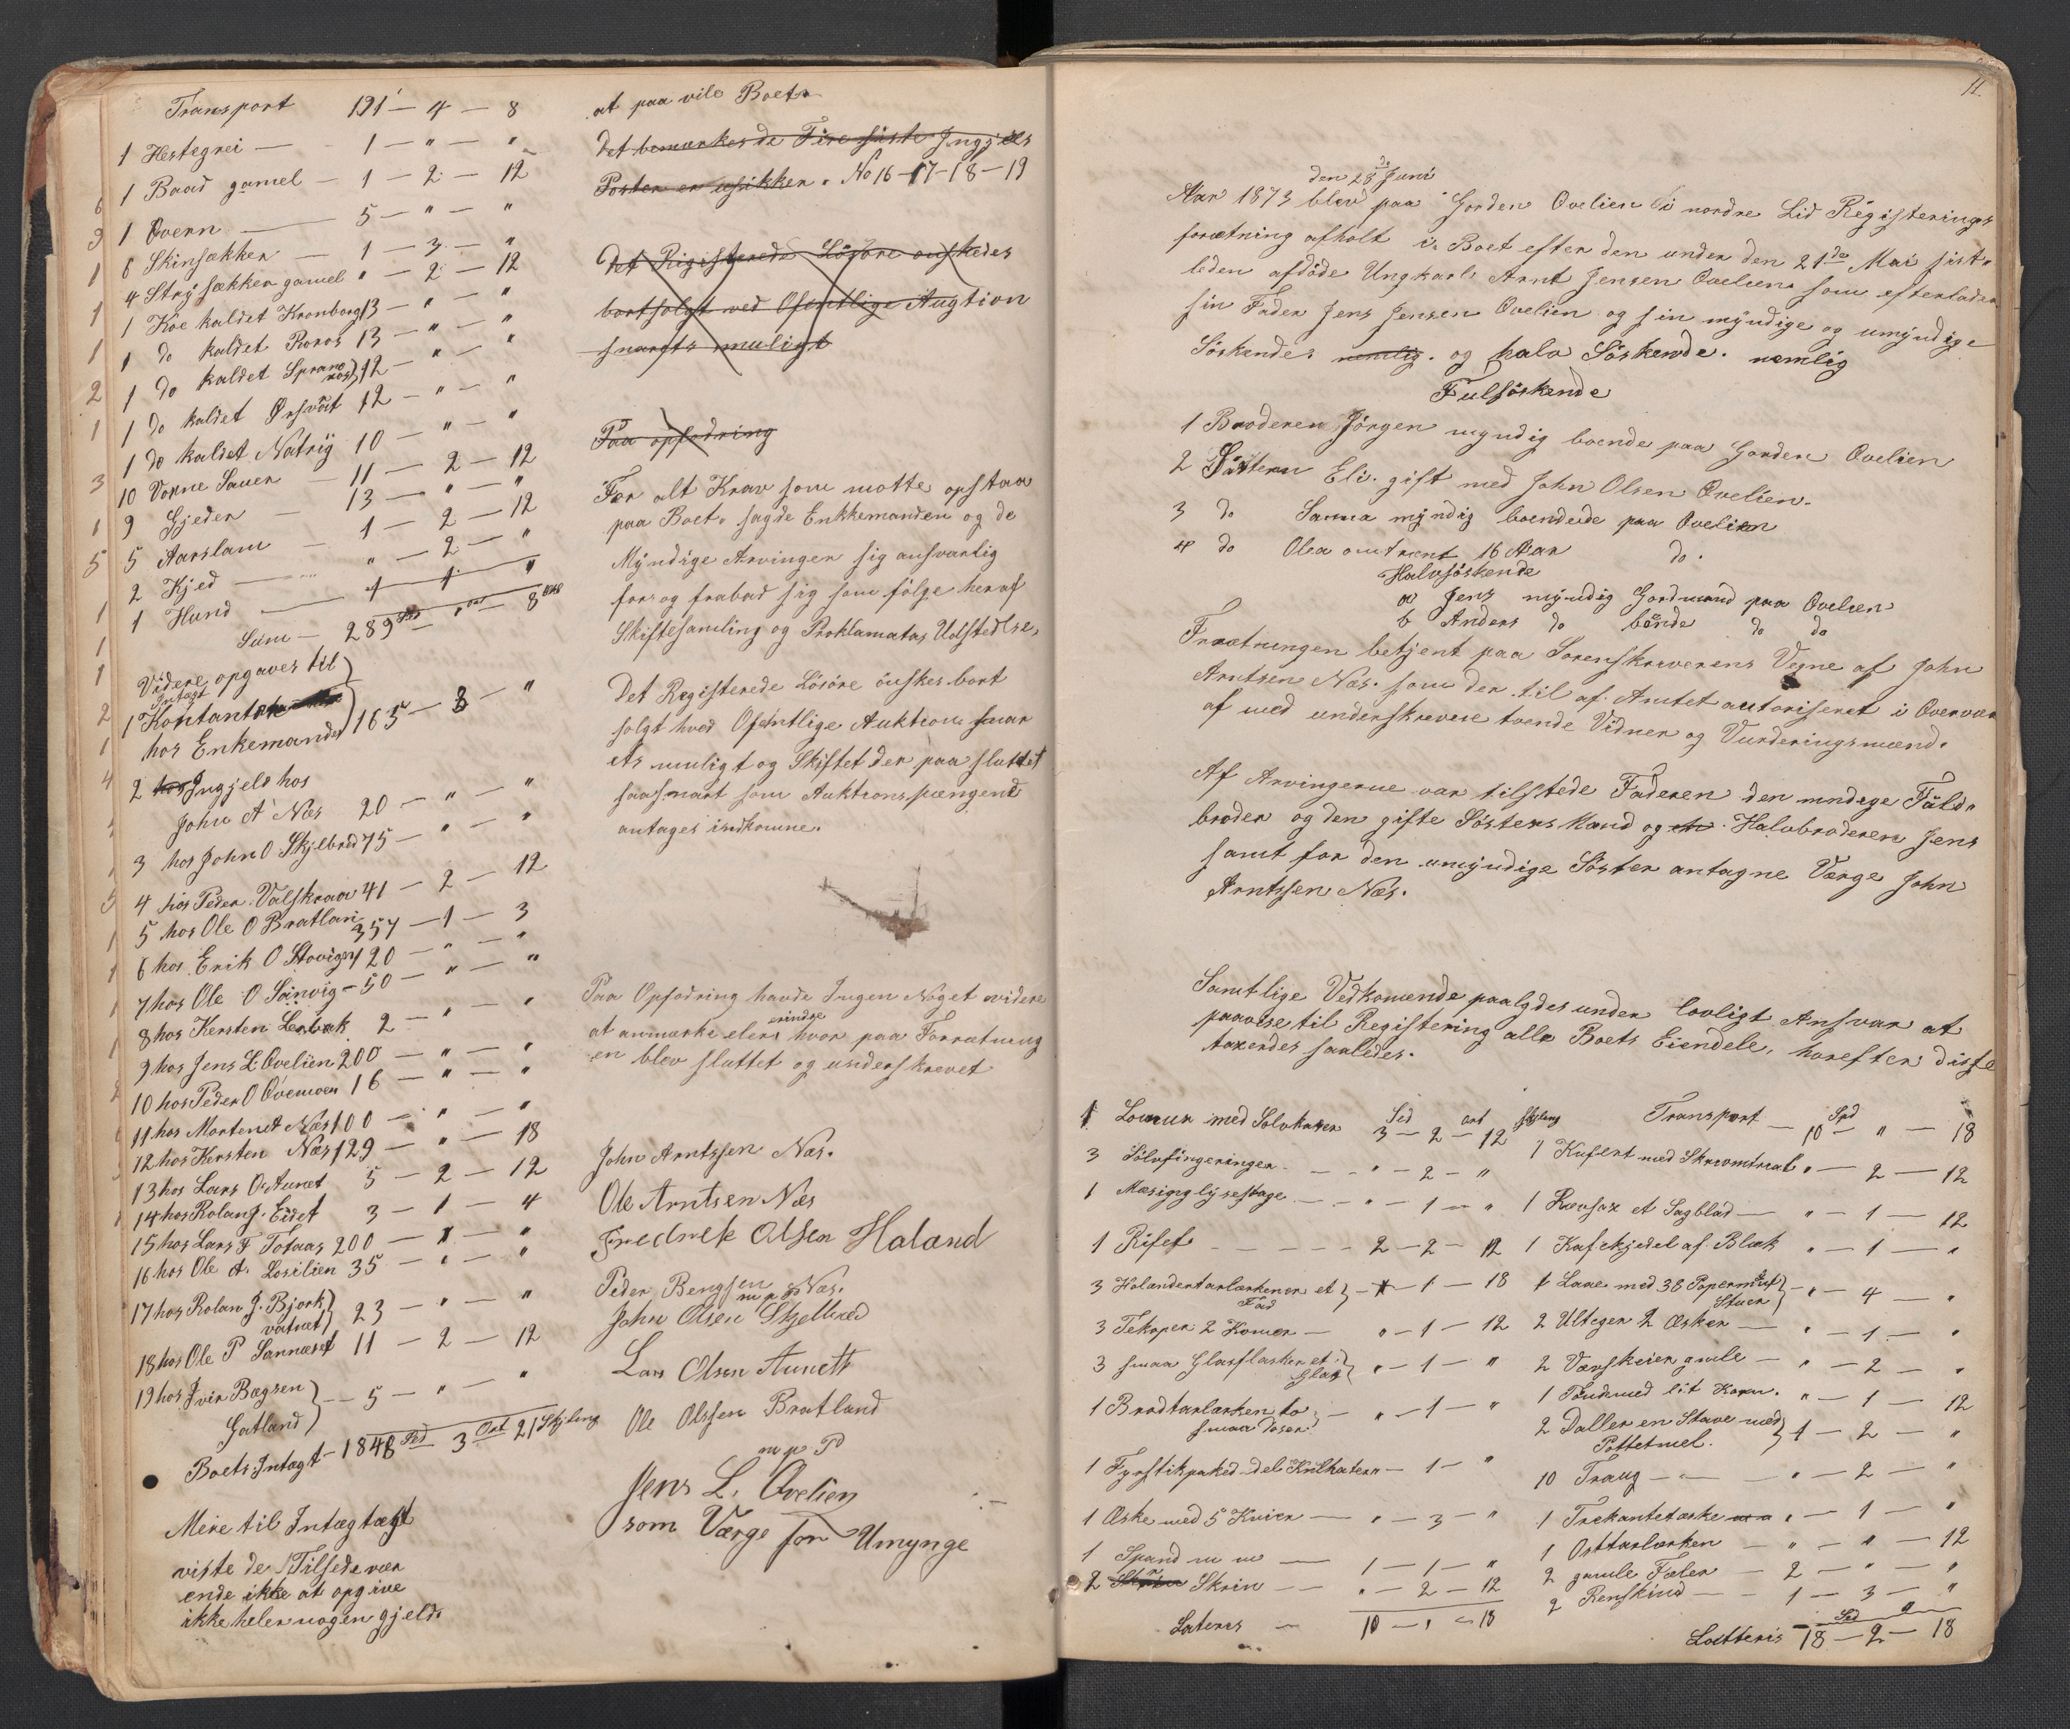 Transport 191 — 4 — 8
1 Hestegrei — 1 — " — "
1 Baad gamel — 1 — 2 — 12
1 Qvern — 5 — " — "
6 Skinsækker — 1 — 3 — "
4 Stry sækker gamel " — 2 — 12
1 Koe kaldet Kronborg 13 — " — "
1 do kaldet Roros 13 — " — "
1 do kaldet Spranros 12 — " — "
1 do kaldet Örsvöit 12 — " — "
1 do kaldet Natrög 10 — " — "
10 Vorne Sauer — 11 — 2 — 12
9 Gjeder — 13 — " — "
5 Aarslam — 1 — 2 — 12
2 Kjed — " — 2 — "
1 Hund — 1 — 1 — "
Sum — 289 Spd — " ort — 8
Videre opgaves til
Intægt
1 Kontant
hos Enkemanden 165 — 3 — "
2 hos Ingjeld hos
John A Næs 20 — " — "
3 hos John O Skjelbred 75 — " — "
4 hos Peder Valskraa 41 — 2 — 12
5 hos Ole O Bratlan 357 — 1 — 3
6 hos Erik O Stovigen 120 — " — "
7 hos Ole O Sørvig — 50 — " — "
8 hos Kersten Lerbak 2 — " — "
9 hos Jens L. Ovelien 200 — " — "
10 hos Peder O Ovemoen 16 — " — "
11 hos Morten A Næs 100 — " — "
12 hos Kersten Næs 129 — " — 18
13 hos Lars O. Aunet 5 — 2 — 12
14 hos Rolan J. Eidet 3 — 1 — 4
15 hos Lars F Tofaas 200 — " — "
16 hos Ole A. Losilien 35 — " — "
17 hos Rolan J. Bjork
vatnet 23 — " — "
18 hos Ole P Sannæset 11 — 2 — 12
19 hos Iver Bægsen
Gatland — 5 — " — "
Boets Intægt — 1848 Spd — 3 Ort 21 Skjling
Mere til Intægtægt
viste de Tilsedevær
ende ikke at opgive
ikke heler nogen gjeld.
at paa vile Boet.
Det bemærkes de Fire siste Ingjelds
Poster er usikker. No 16 — 17 — 18 — 19
Det Rigesterede Lösöre önskedes
bortsolgt ved Ofentlige Augtion
snarets muligt
Paa opfodring
For alt Krav som motte opstaa
paa Boet. sagde Enkkemanden og de
Myndige Arvinger sig ansvarlig
for og frabad sig som fölge heraf
Skiftesamling og Proklamatas Udstedelse,
Det Registerede Lösöre önskes bort
solgt hved Ofentlige Auktion snar
ets muligt og Skiftet der paa sluttet
saasnart som Auktionspengene
antages indkomne.
Paa Opfodring havde Ingen Noget videre
at anmærke elers erindge hvor paa Forrætning
en blev sluttet og underskrevet
John Arntssen Næs.
Ole Arntsen Næs
Fredrek Olsen Haland
Peder Bengsen Næs.
m p P
John Olsen Skjelbred
Lars Olsen Aunets
Ole Olssen Bratland
m p P
Jens L. Ovelien
som Værge for Umynge
11.
den 28de Juni
Aar 1873 blev paa Gorden Ovelien i nordre Lid Registerings
forætning afholt i Boet efter den under den 21de Mai sist
leden afdöde Ungkarl Arnt Jensen Ovelien som efterlader
sin Fader Jens Jensen Ovelien og sin myndige og umyndige
Söskendes nemlig. og halv Söskende. nemlig
Fulsöskende
1 Broderen Jörgen myndig boende paa Gorden Ovelien
2 Söstern Eli. gift med John Olsen Ovelien.
3 do Sanna myndig boendede paa Ovelien
4 do Olea omtrænt 16 Aar do.
Halvsöskende
a Jens myndig Gordmand paa Ovelien
b Anders do bönde do do
Fraætningen betjent paa Sorenskriverens Vegne af John
Arntsen Næs. som der til af Amtet autoriseret i Overvær
af med underskrevene tvende Vidner og Vurderingsmænd.
Af Arvingerne var tilstede Faderen den mndige Fuld
broder og den gifte Sösters Mand og Halvbroderen Jens
samt for den umyndige Söster antagne Værge John
Arntssen Næs.
Samtlige Vedkomende paalgdes under lovligt Ansvar at
paavise til Registering alle Boets Eiendele, horefter disse
taxerdes saaledes.
1 Lomur med Solvkaser Spd 3 — ort 2 — 12 Skjling
3 Sölvfingeringer — " — 2 — "
1 Mæsigglysestage — " — 1 — "
1 Rifef — 2 — 2 — 12
3 Holandertarlærkener et
Fad — " — 1 — 18
3 Tekoper 2 Komer — " — 1 — 12
3 smaa Glasflasker et
Glas " — 1 — "
1 Brodtarlærken to
smaa Doser — " — 1 — "
1 Fyrstikpaked del Knihater " — 1 — "
1 Æske med 5 Knier — " — 3 — "
1 Spand m m — 1 — 1 — "
2 Skrin — " — 2 — 12
Lateres — 10 — " — 18
Transport — 10 Spd — " — 18
1 Kufert med Skrivmtrial " — 2 — 12
1 Ravsax et Sagblad — " — 1 — 12
1 Kafekjedel af Blæk " — 1 — "
1 Laae med 38 Papermuf
Stuer — " — 4 — "
2 Ulteger 2 Æsker — " — 1 — "
2 Vævskeier gamle — " — 2 — "
1 Töndemed lit Korn. " — 1 — 12
2 Daller en Stave med
Pottetmel. 1 — 2 — "
10 Traug — " — 2 — "
1 Trekantetæske " — 1 — "
1 Osttarlærken — " — " — 12
2 gamle Fæler — 2 — " — "
2 Renskind — 1 — 3 — "
Latteris Spd 18 — 2 — 18